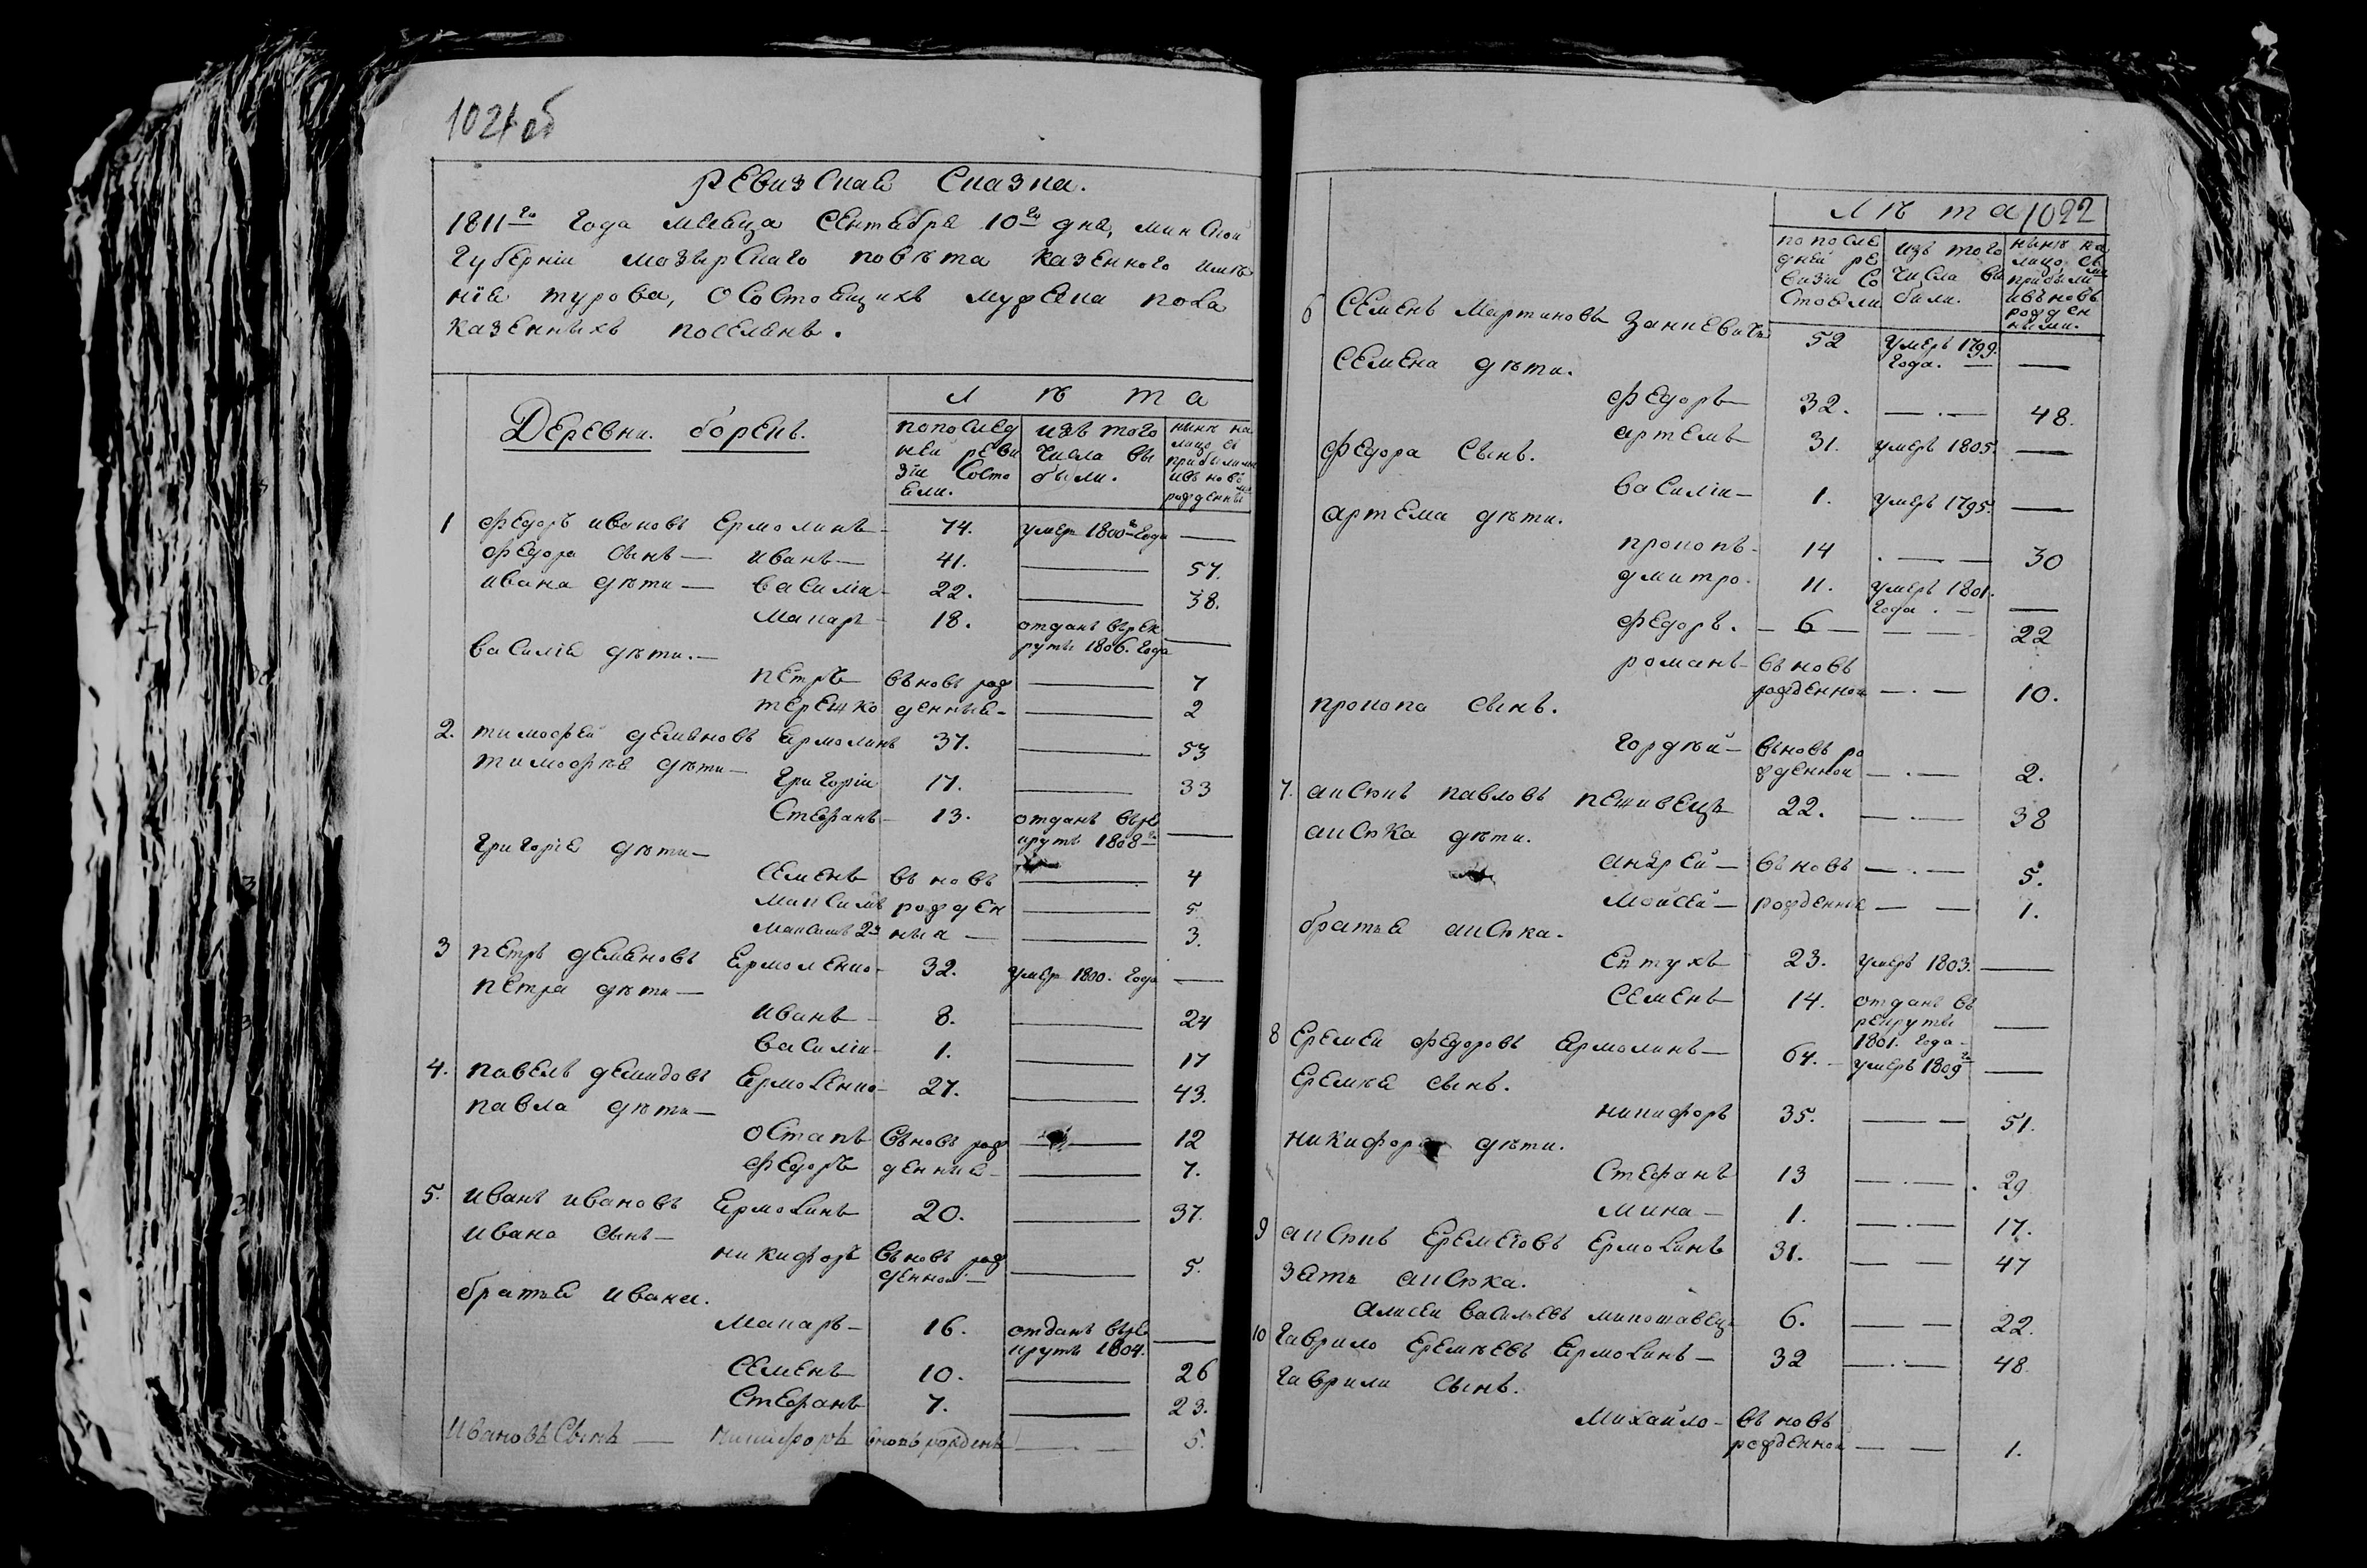 1021 об
Ревизская Сказка.
1811го года месяца Сентября 10го дня, минской
губерніи мозырскаго повѣта казенного имѣ
нія турова, о состоящихъ мужеска пола
казенныхъ поселянъ.
Деревни. борекъ.
Л ѣ т а
по послед
ней реви
зіи Состо
яли.
изъ того
числа вы
были.
нынѣ на
лицо съ
прибылыми
и въ новь
рожденны
ми
1 федоръ ивановъ Ермолинъ 74. умеръ 1800го года —
федора сынъ — иванъ — 41. — 57.
ивана дѣти — василіи 22. — 38.
макаръ 18. отданъ въ рек
руты 1806. года —
василія дѣти. —
петръ въ новь рож — 7
терешко денныя — 2
2. тимофей демяновъ Ермолинъ 37. — 53
тимофѣя дѣти —
григоріи 17. — 33
Стефанъ 13. отданъ въ ре
круты 1808го —
григорія дѣти —
Семенъ въ новь — 4
Максимъ рожден — 5
Максимъ 2й ныя — 3.
3 петръ демяновъ Ермоленко 32. умеръ 1800. года —
петра дѣти —
иванъ 8. — 24
василіи 1. — 17
4. павелъ демидовъ Ермоленко 27. — 43.
павла дѣти —
Остапъ въ новь рож — 12
федоръ денныя — 7.
5. иванъ ивановъ Ермолинъ 20. — 37.
ивана сынъ —
никифоръ въ новь рож
денной — 5.
братья ивана.
Макаръ — 16. отданъ въ ре
круты 1804. —
Семенъ 10. — 26
Стефанъ 7. — 23.
Ивановъ Сынъ — никифоръ вновь рожденъ — 5.
Л ѣ т а 1022
по после
дней ре
визіи Со
стояли
изъ того
числа вы
были.
нынѣ на
лицо съ
прибылыми
и въ новь
рожден
ными.
6 Семенъ Мартиновъ Занкевичъ 52 умеръ 1799.
года. — —
Семена дѣти.
федоръ 32. — . — 48.
артемъ 31. умеръ 1805. —
федора сынъ.
василіи — 1. умеръ 1795. —
артема дѣти.
прокопъ — 14 . — — 30
дмитро. 11. умеръ 1801.
года. — —
федоръ. — 6 — — — 22
романъ — въ новь
рожденной — . — 10.
прокопа сынъ.
гордѣй — въ новь ро
жденной — . — 2.
7. аксюкъ павловъ 22. — . — 38
аксюка дѣти.
андрей — въ новь — . — 5.
Мойсей — рожденные — — 1.
братья аксюка.
Евтухъ 23. умеръ 1803. —
Семенъ 14. отданъ въ
рекруты
1801. года — —
8 Еремеи федоровъ Ермолинъ — 64. — умеръ 1809го —
Еремѣя сынъ.
никифоръ 35. — — 51.
никифора дѣти.
Стефанъ 13 — . — . 29
Мина — 1. — . — 17.
9 аксюкъ Еремеговъ Ермолинъ 31. — — 47
зять аксюка.
алисеи васильевъ 6. — — 22.
10 гаврило Еремѣевъ Ермолинъ — 32 — . — 48.
гаврили сынъ.
Михайло — въ новь
рожденной — — 1.